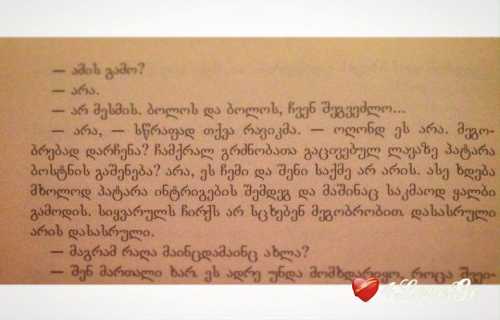 — ამის გამო?
— არა.
— არ მესმის. ბოლოს და ბოლოს, ჩვენ შეგვეძლო...
— არა, — სწრაფად თქვა რავიკმა. — ოღონდ ეს არა. მეგო-
ბრებად დარჩენა? ჩამქრალ გრძნობათა გაცივებულ ლავაზე პატარა
ბოსტნის გაშენება? არა, ეს ჩემი და შენი საქმე არ არის. ასე ხდება
მხოლოდ პატარა ინტრიგების შემდეგ და მაშინაც საკმაოდ ყალბი
გამოდის. სიყვარულს ჩირქს არ სცხებენ მეგობრობით. დასასრული
არის დასასრული.
— მაგრამ რაღა მაინცდამაინც ახლა?
— შენ მართალი ხარ. ეს ადრე უნდა მომხდარიყო, როცა შვეი-